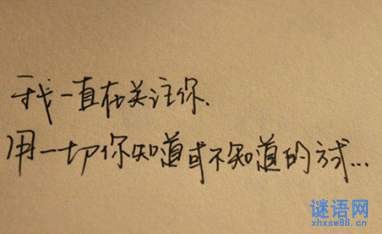 我一直在关注你.
用一切你知道或不知道的方式...
谜语网
xhxsw88.cn